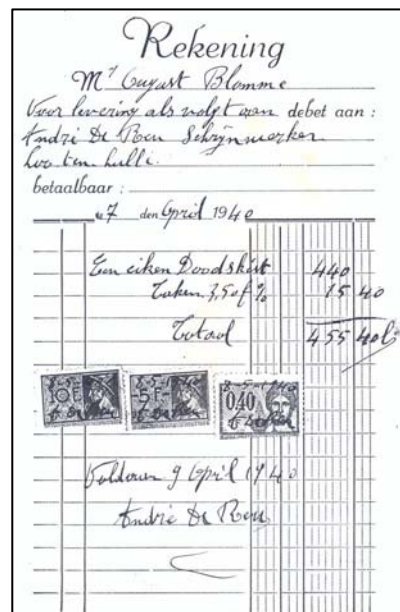 Rekening
Mr August Blomme
Voor levering als volgt aan debet aan :
André De Reu Schrijnwerker
betaalbaar :
7 den April 1940
Een eiken Doodskist 440
Taken 3,50 f % 15 40
Totaal 455 40
10F
5F
0,40
Voldaan 9 April 1940
André De Reu